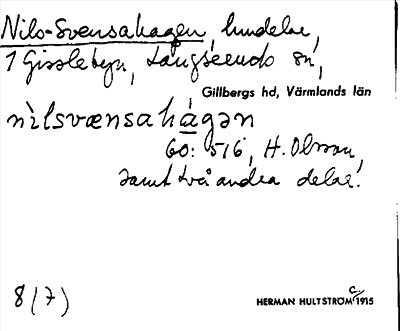 Nils-Svensahagen, hindelar,
1 Gisslebyn, Långserud sn,
Gillbergs hd, Värmlands län
nìlsvænsahágən
60: 516, H. Olsson,
samt två andra delar.
8 (7)
HERMAN HULTSTRÖM c/1915